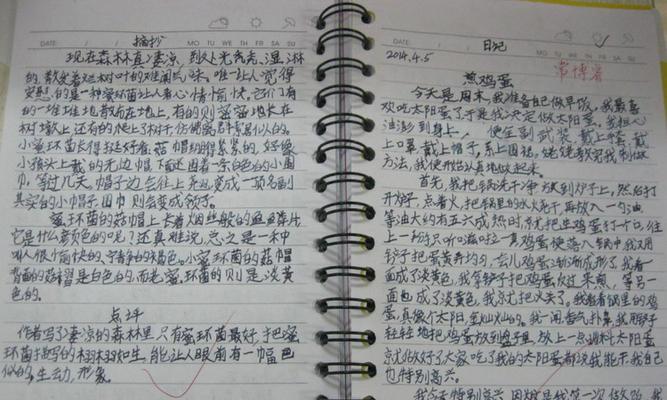 DATE: / /
摘抄
MO TU WE TH FR SA SU
现在森林真凄凉,到处光秃秃、湿淋淋
的,散发着烂树叶的难闻气味。唯一让人觉得
安慰的是一种蜜环菌让人看心情愉快,它们有
的一堆堆地散布在地上,有的则密密地长在
树墩上,还有的爬上了树干,仿佛离群索居似的。
小蜜环菌长得挺好看。菇帽绷得紧紧的,好像
小孩头上戴的无边帽,下面还围着一条白色的小围
巾。等过几天,帽子边会往上翘起变成一顶名副
其实的小帽子,围巾则会变成领子。
蜜环菌的菇帽上长着烟丝般的鱼鱼薄片
它是什么颜色的呢?还真难说,总之是一种
叫人很愉快的、宁静的褐色。小蜜环菌的菇帽
背面的菇褶是白色的,而老蜜环菌的则是淡黄
色的。
点评
作者写了凄凉的森林里只有蜜环菌最好,把蜜
环菌描写的栩栩如生,能让人眼前有一幅画
似的,生动,形象。
DATE: / /
日记
MO TU WE TH FR SA SU
2014.4.5
常博睿
煎鸡蛋
今天是周末,我准备自己做早饭,我最喜
欢吃太阳蛋了于是我决定做太阳蛋。我担心
油澎到身上,便全副武装,戴上手套,戴
上口罩,戴上帽子,系上围裙,姥姥教给我制做
方法,我便开始认真地做起来。
首先,我把锅洗干净放到炉子上,然后打
开炉子,点着火,把锅里的水火干再放入一勺油
等油大约有五六成热时,就把生鸡蛋打个口,往
上一掰只听口滋的一声鸡蛋便落入锅中我又用
铲子把蛋黄弄均匀,会儿鸡蛋渐渐成形了我看一
面成了淡黄色,我拿铲子把鸡蛋放过来煎,等另一
面也成了淡黄色,我就把火关了。我看看锅里的鸡
蛋,真像个太阳,金灿灿的。我一闻香气扑鼻,我用铲子
轻轻地把鸡蛋放到盘子里,放上一点调料太阳蛋
就做好了大家吃了我的太阳蛋都说我能干我自己
也特别高兴。
我今天特别高兴,因为这是我第一次做饭,我